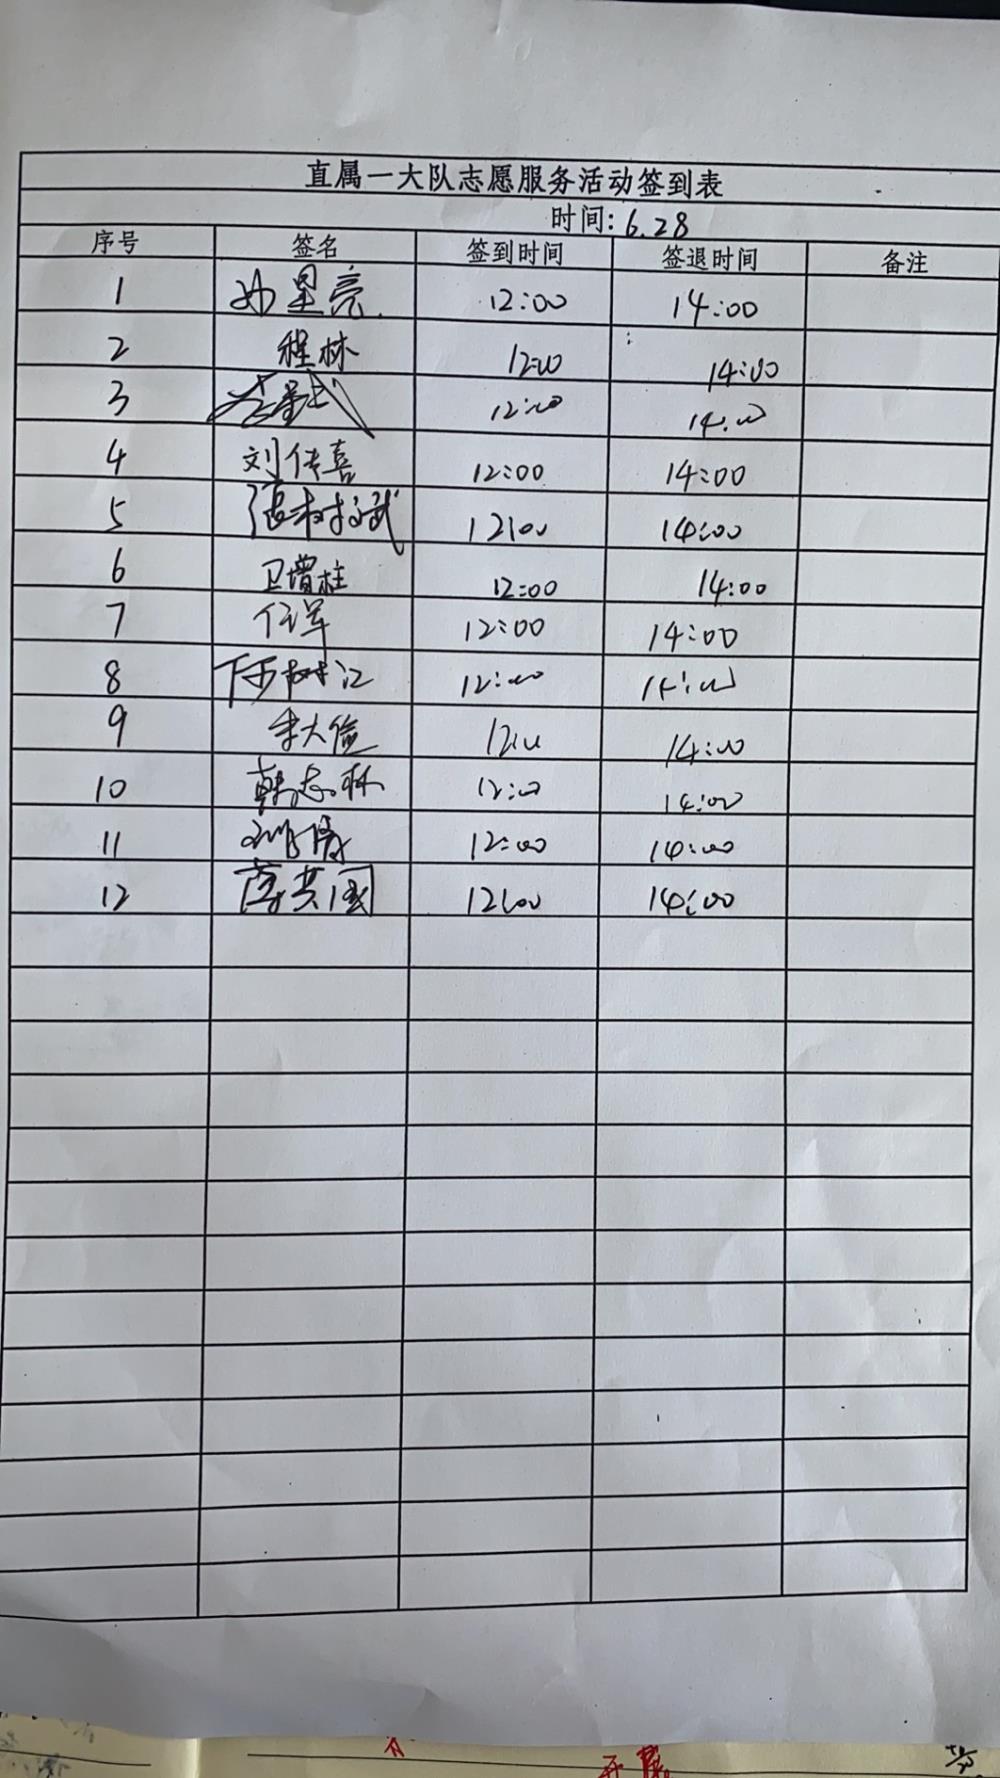 直属一大队志愿服务活动签到表
时间: 6.28
序号 签名 签到时间 签退时间 备注
1 星亮 12:00 14:00
2 程林 12:00 14:00
3 12:00 14:00
4 刘传喜 12:00 14:00
5 张树斌 12:00 14:00
6 卫增柱 12:00 14:00
7 任军 12:00 14:00
8 树江 12:00 14:00
9 李大俭 12:00 14:00
10 韩志林 12:00 14:00
11 12:00 14:00
12 薛共国 12:00 14:00